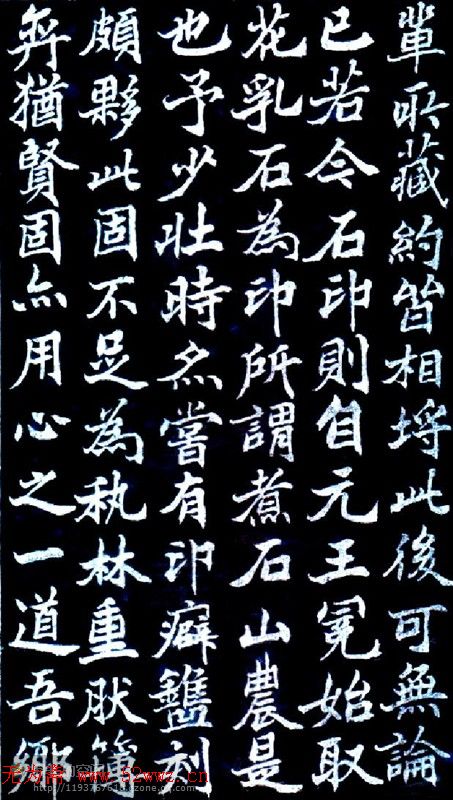 輩所藏約皆相埒此後可無論
已若今石印則自元王冕始取
花乳石為印所謂煮石山農是
也予少壯時亦嘗有印癖鐫刻
頗夥此固不足為秇林重肰簿
弈猶賢固亦用心之一道吾鄉
无为斋 www.52wwz.cn